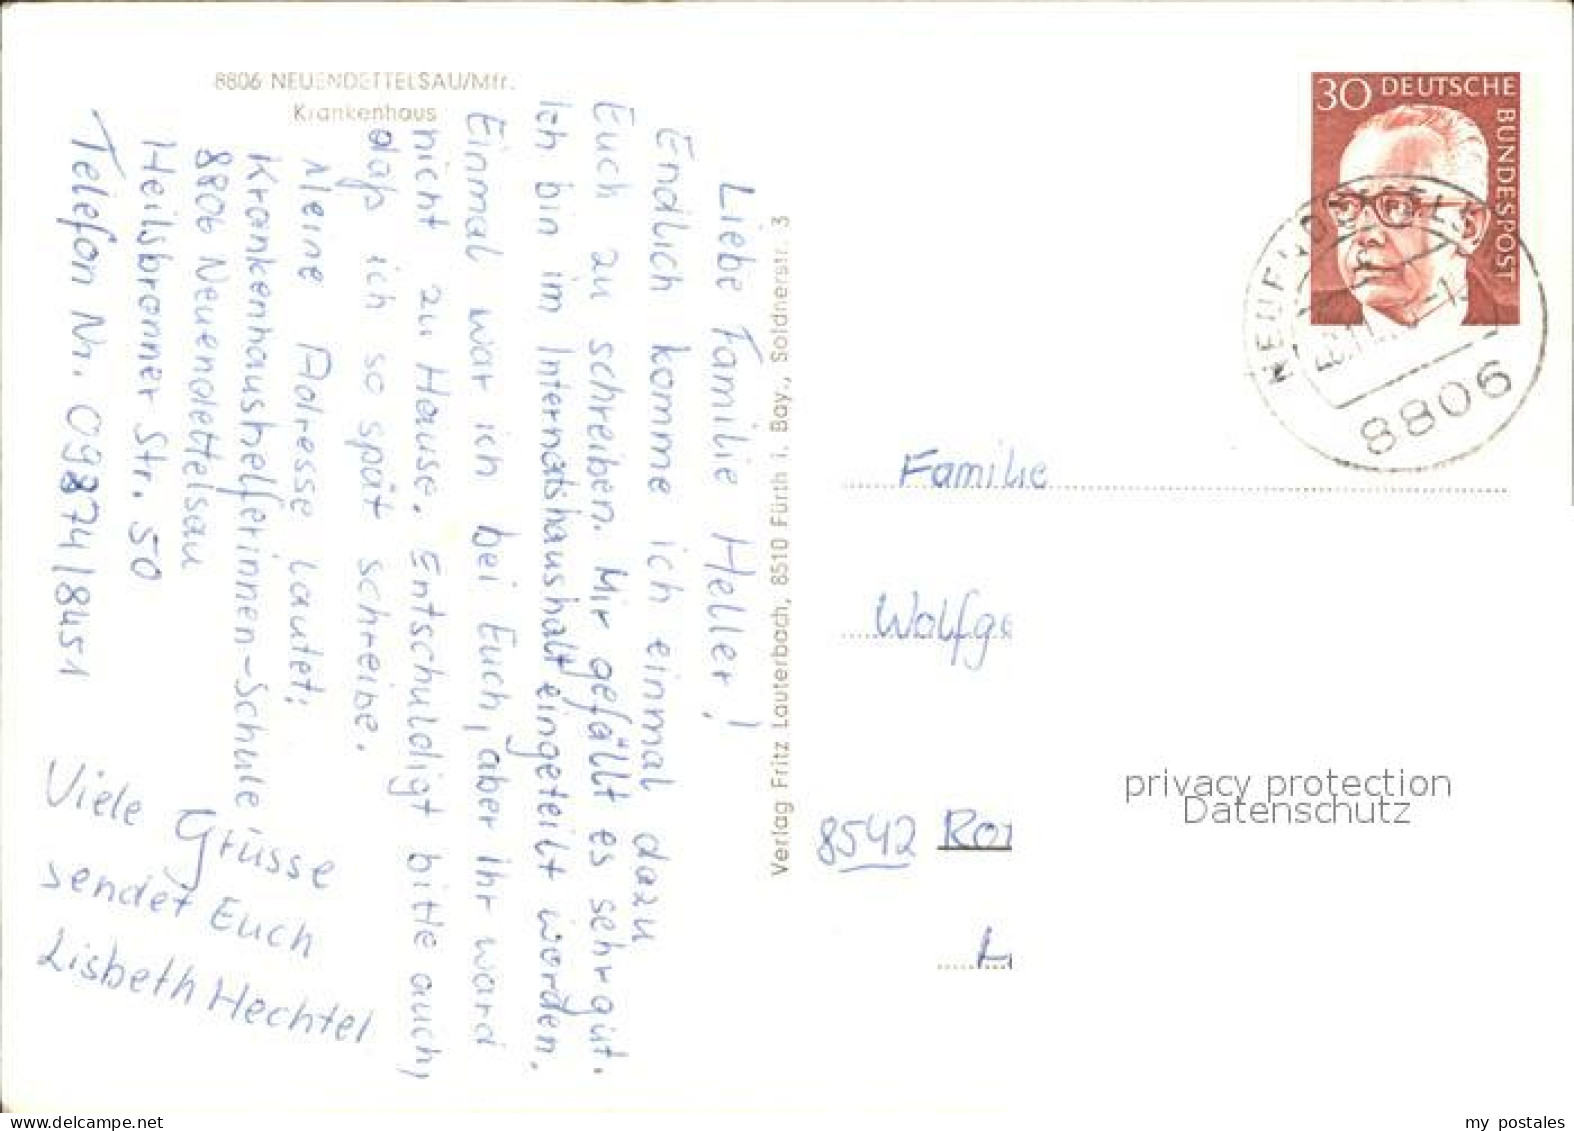 8806 NEUENDETTELSAU/Mfr.
Krankenhaus
Liebe Familie Heller!
Endlich komme ich einmal dazu
Euch zu schreiben. Mir gefällt es sehr gut.
Ich bin im Internatshaushalt eingeteilt worden.
Einmal war ich bei Euch, aber Ihr ward
nicht zu Hause. Entschuldigt bitte auch,
daß ich so spät schreibe.
Meine Adresse lautet:
Krankenhaushelferinnen-Schule
8806 Neuendettelsau
Heilsbronner Str. 50
Telefon Nr. 09874/8451
Viele Grüsse
sendet Euch
Lisbeth Hechtel
Verlag Fritz Lauterbach, 8510 Fürth i. Bay., Soldnerstr. 3
30 DEUTSCHE
BUNDESPOST
8806
Familie
Wolfg
8542 Ro
privacy protection
Datenschutz
my postales